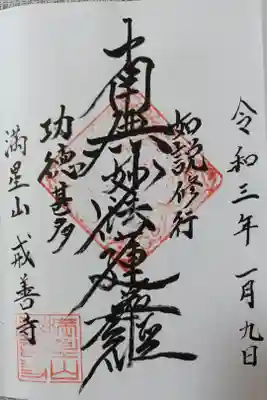 令和三年一月九日
如説修行
南無妙法蓮華經
功徳甚多
満星山 戒善寺